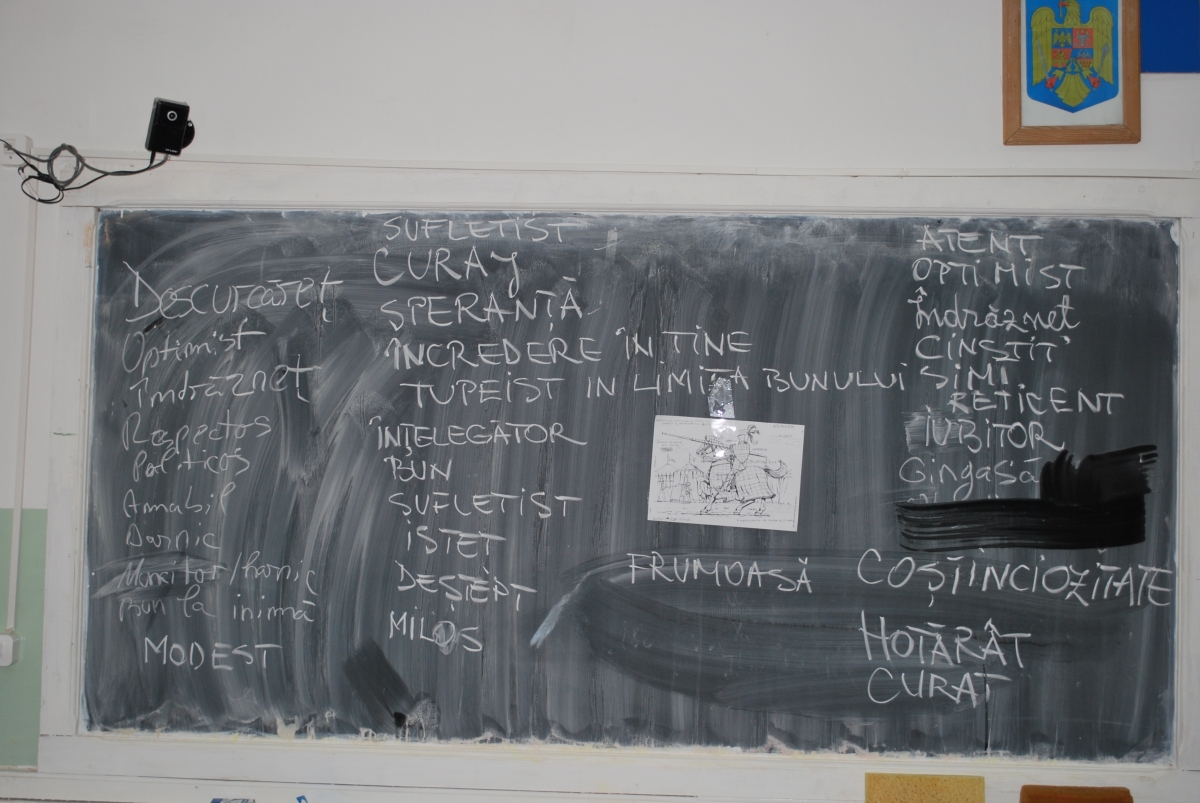 Descurcareț
Optimist
Îndrăzneț
Respectos
Politicos
Amabil
Darnic
Bun la inimă
MODEST
SUFLETIST
CURAJ
SPERANȚĂ
ÎNCREDERE ÎN TINE
TUPEIST IN LIMITA BUNULUI SIMȚ
ÎNȚELEGĂTOR
BUN
SUFLETIST
ISTEȚ
DEȘTEPT
MILOS
FRUMOASĂ
ATENT
OPTIMIST
Îndrăzneț
CINSTIT
RETICENT
IUBITOR
Gingașă
COȘTINCIOZITATE
HOTĂRÂT
CURAT